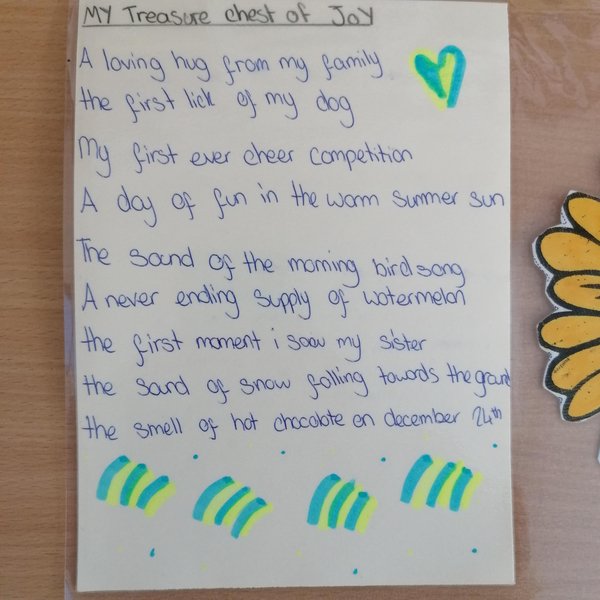 MY Treasure chest of JOY
A loving hug from my family
the first lick of my dog
My first ever cheer competition
A day of fun in the warm summer sun
The sound of the morning birdsong
A never ending supply of watermelon
the first moment i saw my sister
the sound of snow falling towards the ground
the smell of hot chocolate on december 24th